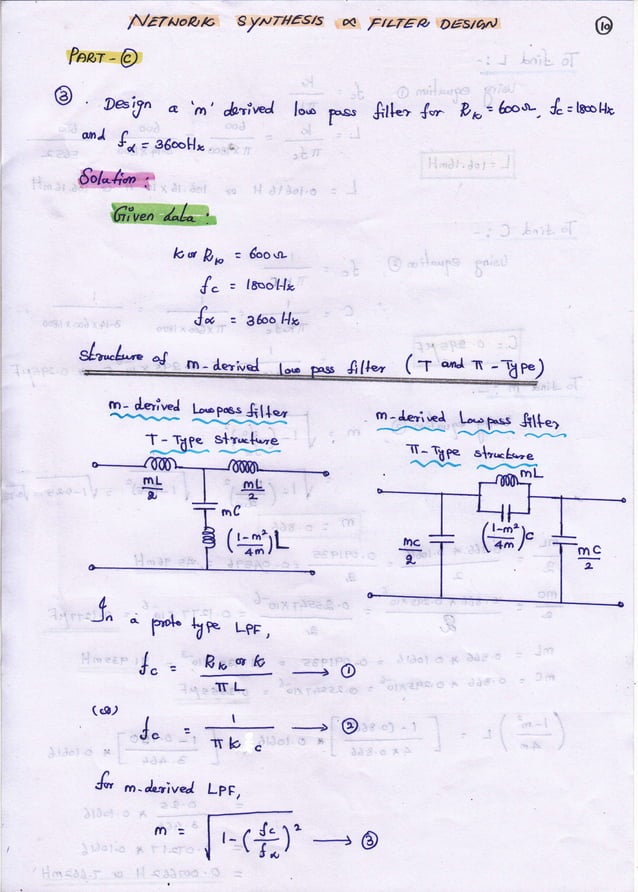 NETWORK SYNTHESIS & FILTER DESIGN
10
PART - C
3. Design a 'm' derived low pass filter for Rk = 600Ω, fc = 1800Hz
and f∝ = 3600Hz.
Solution:
Given data:
k or Rk = 600Ω
fc = 1800Hz
f∝ = 3600 Hz
Structure of m-derived low pass filter (T and π - Type)
m-derived Lowpass filter
T - Type structure
mL/2 mL/2
mC
((1-m²)/4m) L
m-derived Lowpass filter
π - Type structure
mL
((1-m²)/4m) C
mC/2 mC/2
In a proto type LPF,
fc = (Rk or k)/(πL) → 1
(or) fc = 1/(πkc) → 2
for m-derived LPF,
m = √(1 - (fc/f∝)²) → 3